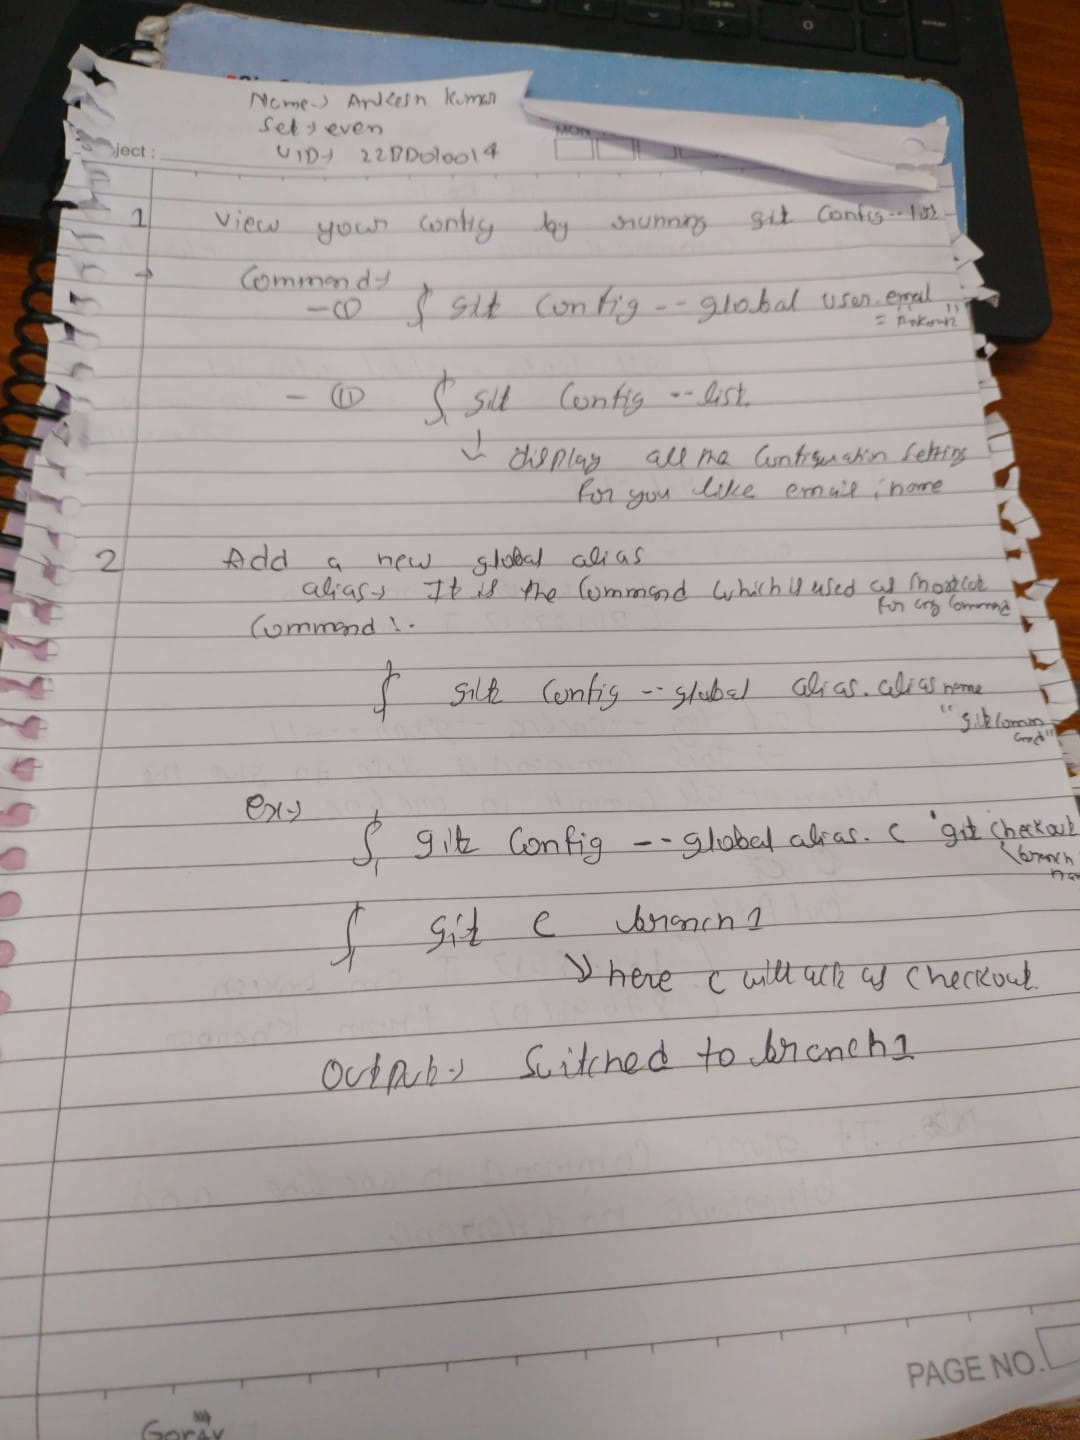 Name → Ankesh Kumar
Set → even
UID → 22BDO10014
ject :
MON
1 View your config by running git config --list
→ Command →
- (i) $ git config --global user.email
= "Ankesh"
- (ii) $ git config --list.
↓ display all the configuration setting
for you like email, name
2 Add a new global alias
alias → It is the command which is used as shortcut
for any command
Command :-
$ git config --global alias.aliasname
"git command"
ex →
$ git config --global alias. c 'git checkout
<branch
$ git c branch1
↘ here c will act as checkout.
Output → Switched to branch1
PAGE NO.
Gorav